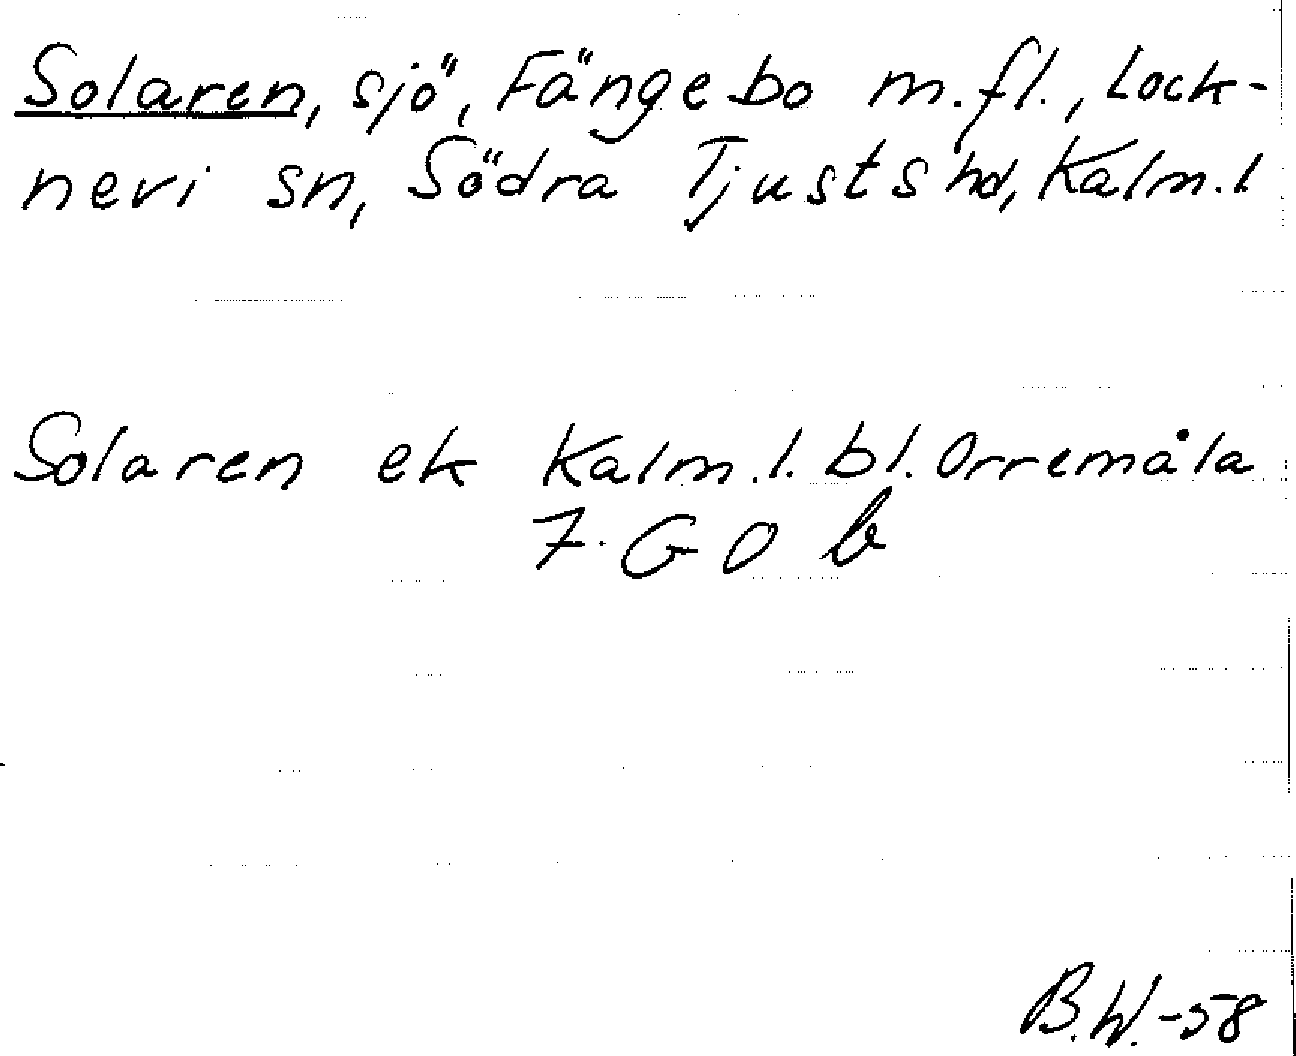 Solaren, sjö, Fängebo m.fl., Lock-
nevi sn, Södra Tjusts hd, Kalm.l
Solaren ek Kalm.l. bl. Orremåla
7. G O b
B.W.-58